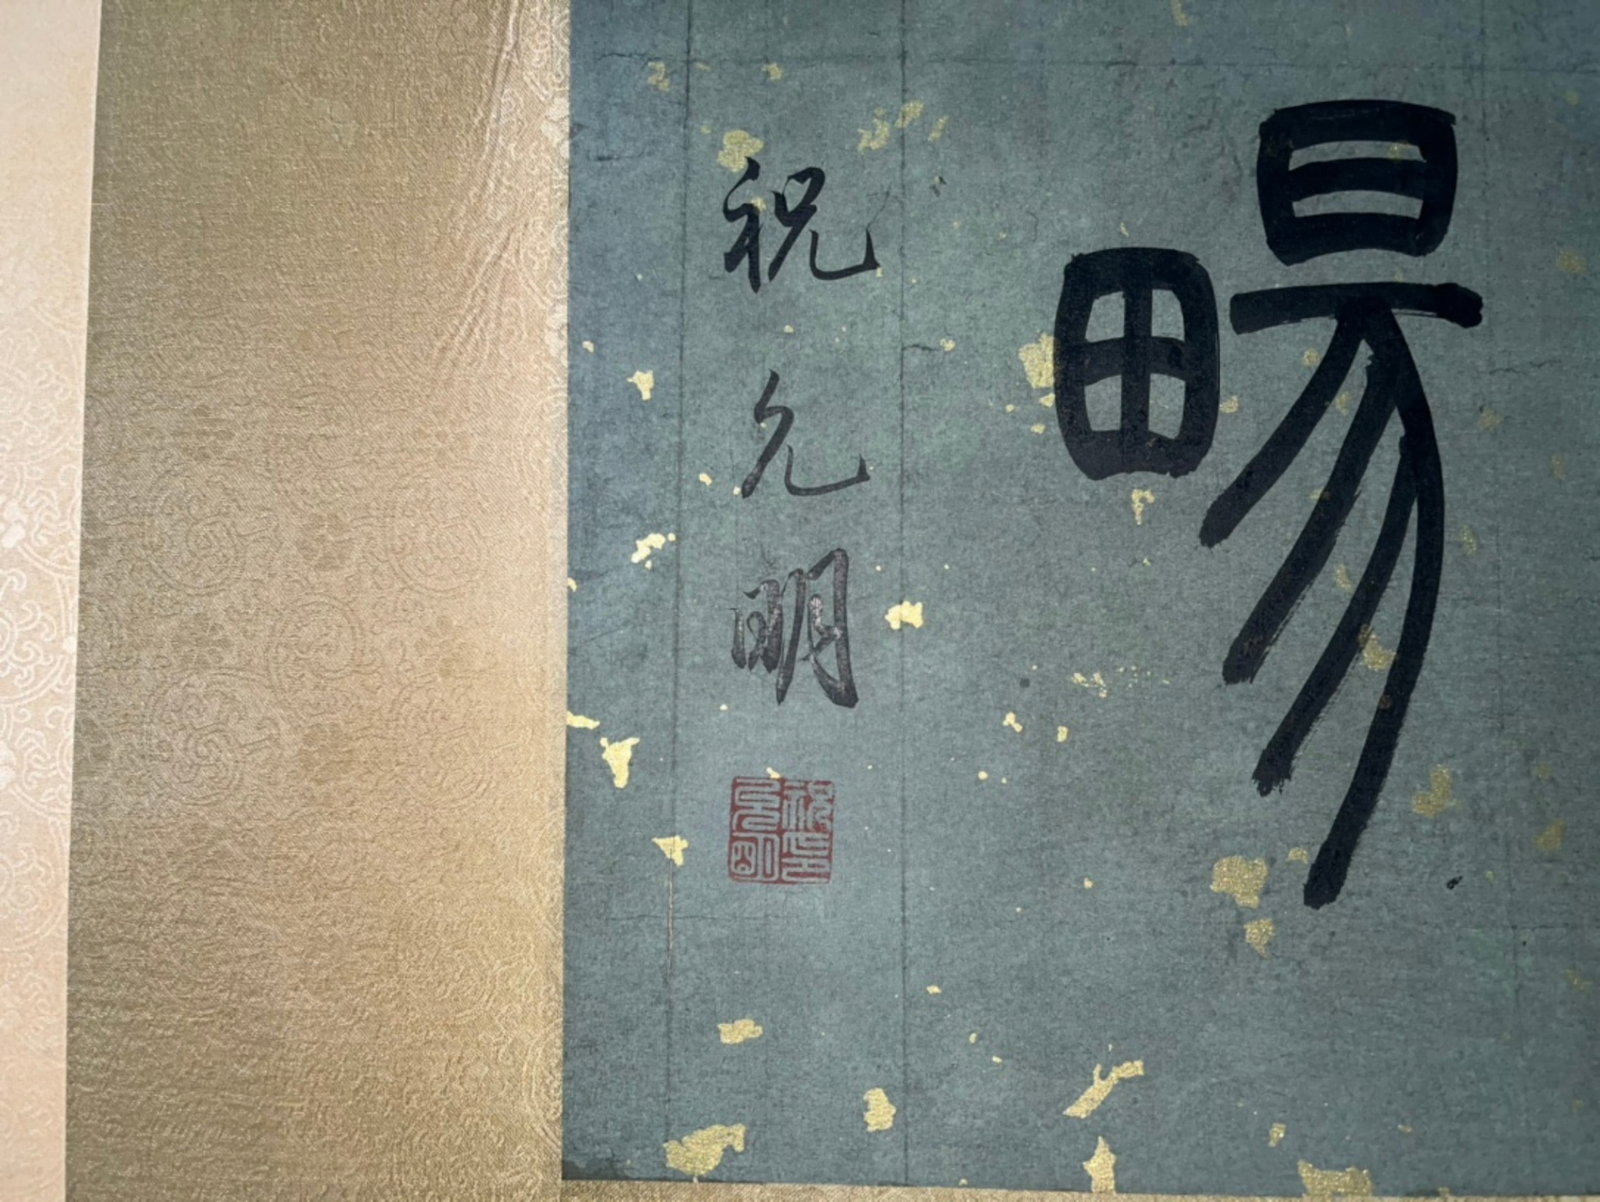 畼
祝允明
祝允明印